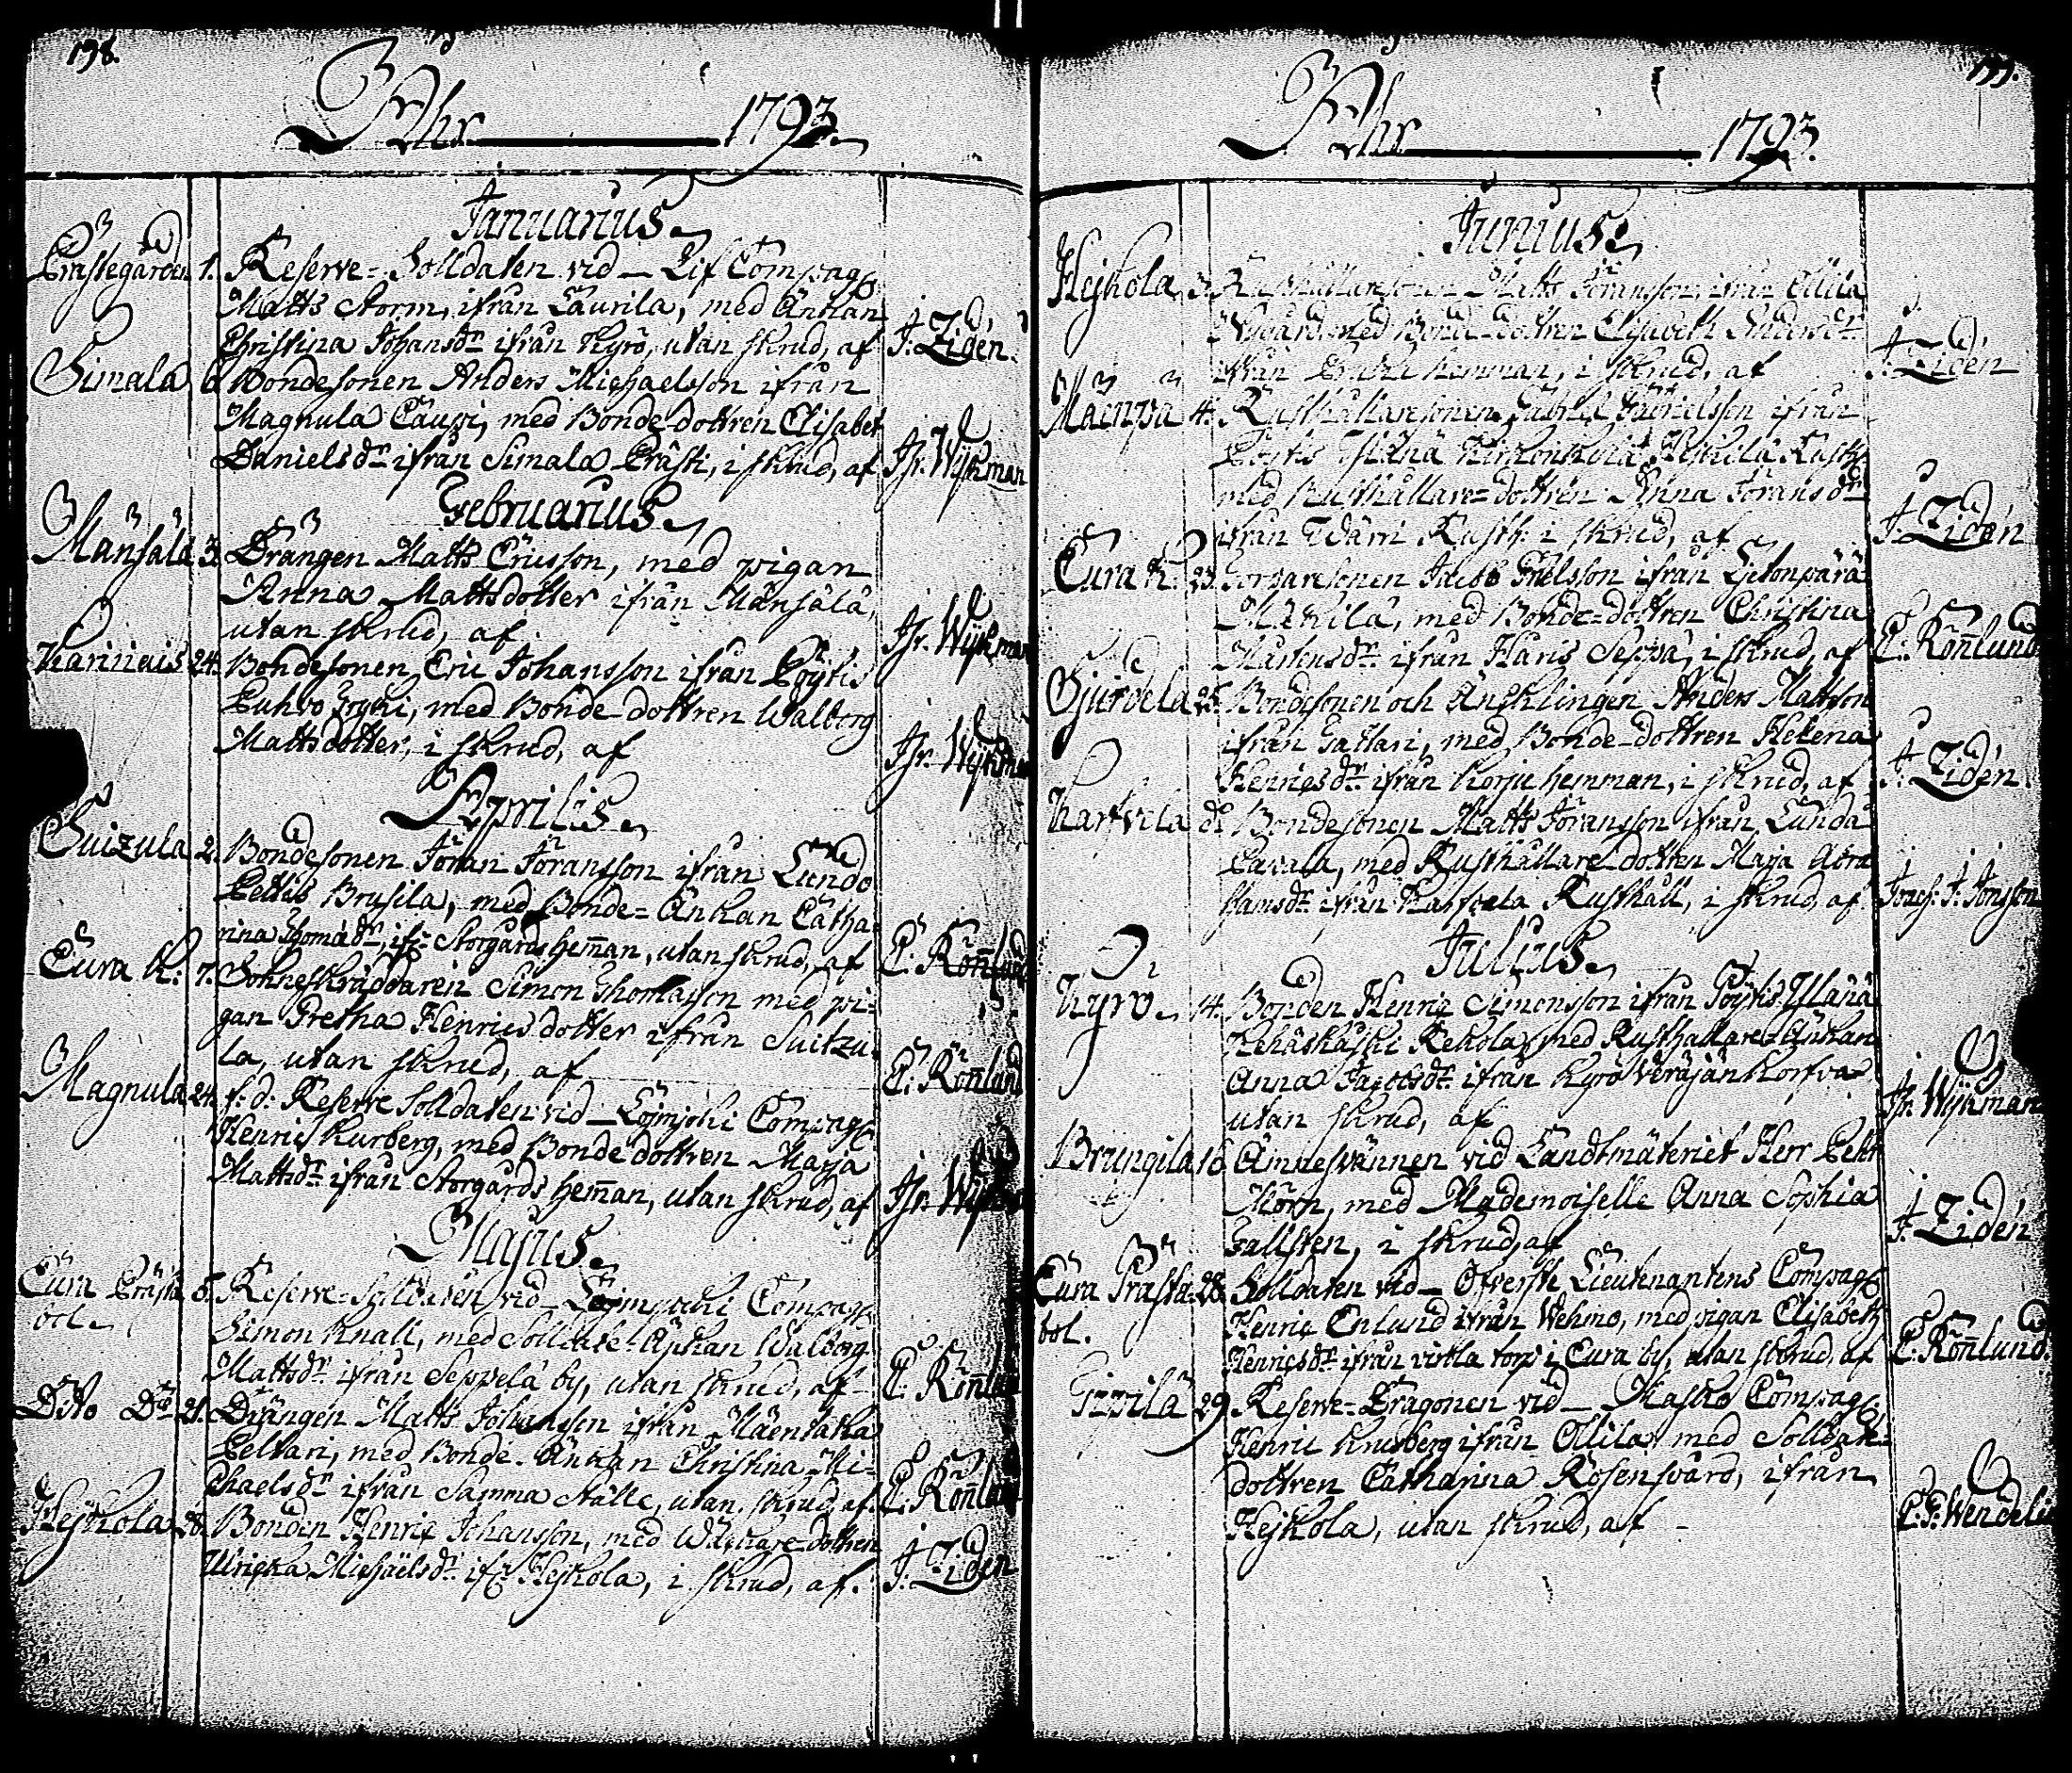 198.
Åhr 1793.
Januarius.
Prästegården 1. Reserve-Solldaten vid Lif Compag:
Matts Storm, ifrån Laurila, med Änkan
Christina Johansdr ifrån Kyrö, utan skrud, af J. Zidén.
Simala 6. Bondesonen Anders Michaelsson ifrån
Magnula Caupi, med Bonde-dottren Elisabet
Danielsdr ifrån Simala Prästi, i skrud, af Jh. Wijkman
Februarius.
Mänsälä 3. Drängen Matts Ericsson, med pigan
Anna Mattsdotter ifrån Mänsälä,
utan skrud, af Jh. Wijkman
Karinais 24. Bondesonen Eric Johansson ifrån Pöytis
med Bonde-dottren Walborg
Mattsdotter, i skrud, af Jh. Wijkman
Aprilis.
Suizula 2. Bondesonen Jöran Jöransson ifrån Lundo
Pettis Brusila, med Bonde-Änkan Catha-
rina Thomædr, ifr. Storgårds hem̄an, utan skrud, af E. Rön̄lund
Eura K. 7. Sockneskräddaren Simon Thomasson med pi-
gan Gretha Henricsdotter ifrån Suitzu-
la, utan skrud, af E. Rön̄lund
Magnula 24. f. d. Reserve Solldaten vid Loimjoki Compag:
Henric Kurberg, med Bondedottren Maja
Mattsdr ifrån Storgårds hem̄an, utan skrud, af Jh. Wijkman
Majus.
Eura Prästa- 5. Reserve-Solldaten vid Loimjocki Compag:
bol.
Simon Knall, med Solldate-Änkan Walborg
Mattsdr ifrån Seppelä by, utan skrud, af E. Rön̄lund
Dito Do 21. Drängen Matts Johansson ifrån Mäentaka
Peltari, med Bonde-Änkan Christina Mi-
chaelsdr ifrån Samma ställe, utan skrud, af E. Rön̄lund
Hejkola 28. Bonden Henric Johansson, med dottren
Ulricka Michaelsdr ifr. Hejkola, i skrud, af J. Zidén
199.
Åhr 1793.
Junius.
Hejkola 3. Rusthållaresonen Matts Jöransson, ifrån Ollila
Nygård, med Bonde-dottren Elisabeth Andersdr
ifrån hemman, i skrud, af J. Zidén
Mäenpä 4. Rusthållaresonen Gabriel Gabrielsson ifrån
Pöytis Yläne Heikola Rusth.
med Rusthållare-dottren Anna Jöransdr
ifrån Rusth. i skrud, af J. Zidén
Eura K. 23. Torparesonen Jacob ifrån
Mickilä, med Bonde-dottren Christina
Mårtensdr ifrån Haris Seppä, i skrud, af E. Rön̄lund
Sjurdela 25. Bondesonen och Änklingen Anders Mattsson
ifrån Tattari, med Bonde-dottren Helena
Henricsdr ifrån Korju hemman, i skrud, af J. Zidén.
Karfvila do Bondesonen Matts Jöransson ifrån Lunda
Pavala, med Rusthållare-dottren Maja Abra-
hamsdr ifrån Karfvela Rusthåll, i skrud, af Joach. J. Jonsson
Julius.
Kyrö 14. Bonden Henric Simonsson ifrån Pöytis Yläne
Rekola, med Rusthållare-Änkan
Anna Jacobsdr ifrån Kyrö Veräjänkorfva
utan skrud, af Jh. Wijkman
Brungila 16. Ämnesvännen vid Landtmäteriet Herr Pehr
Körn, med Mademoiselle Anna Sophia
Gallsten, i skrud, af J. Zidén
Eura Prästa- 28. Solldaten vid Öfverste Lieutenantens Compag:
bol.
Henric Enlund ifrån Wehmo, med pigan Elisabeth
Henricsdr ifrån torp i Eura by, utan skrud, af E. Rön̄lund.
Gippilä 29. Reserve-Dragonen vid Masko Compag:
Henric Krusberg ifrån Ollila, med Solldate-
dottren Catharina Rosensvärd, ifrån
Hejkola, utan skrud, af E. P. Wendelin